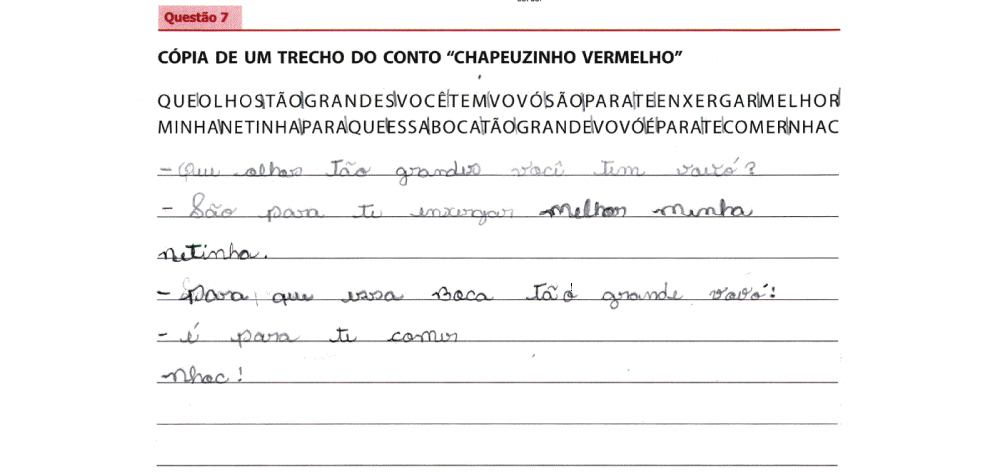 Questão 7
CÓPIA DE UM TRECHO DO CONTO “CHAPEUZINHO VERMELHO”
QUE|OLHOS|TÃO|GRANDES|VOCÊ|TEM|VOVÓ|SÃO|PARA|TE|ENXERGAR|MELHOR|
MINHA|NETINHA|PARA|QUE|ESSA|BOCA|TÃO|GRANDE|VOVÓ|É|PARA|TE|COMER|NHAC
- Que olhos tão grandes você tem vovó?
- São para te enxergar melhor minha
netinha.
- Para que essa Boca tão grande vovó!
- é para te comer
nhac!